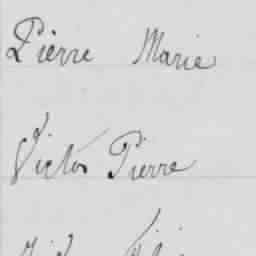 Pierre Marie
Victor Pierre